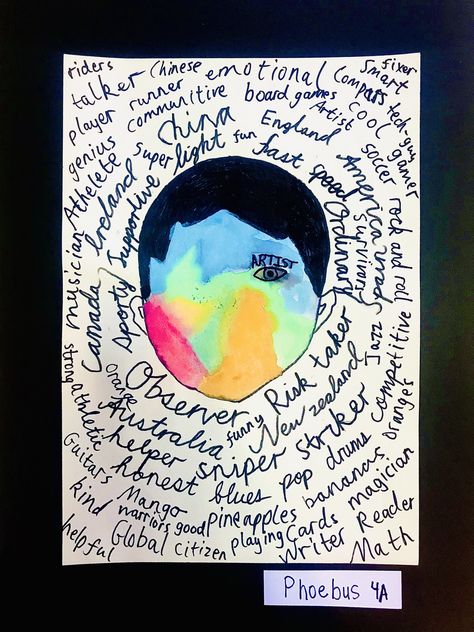 riders
Chinese
emotional
Compass
Smart
fixer
talker
runner
board games
Artist
COOL
tech-guy
player
communitive
China
England
soccer
gamer
genius
super
light
fun
fast
good
America
Athelete
Supportive
Ordinary
survivors
pain
rock and roll
Ireland
musician
Canada
sporty
ARTIST
Jazz
competitive
strong
orange
Observer
funny
Risk taker
New zealand
Oranges
athletic
Australia
sniper
striker
Guitars
helper
honest
blues
pop
drums
bananas
magician
kind
Mango
warriors
good
pineapples
playing
Cards
Writer
Reader
helpful
Global citizen
Math
Phoebus 4A